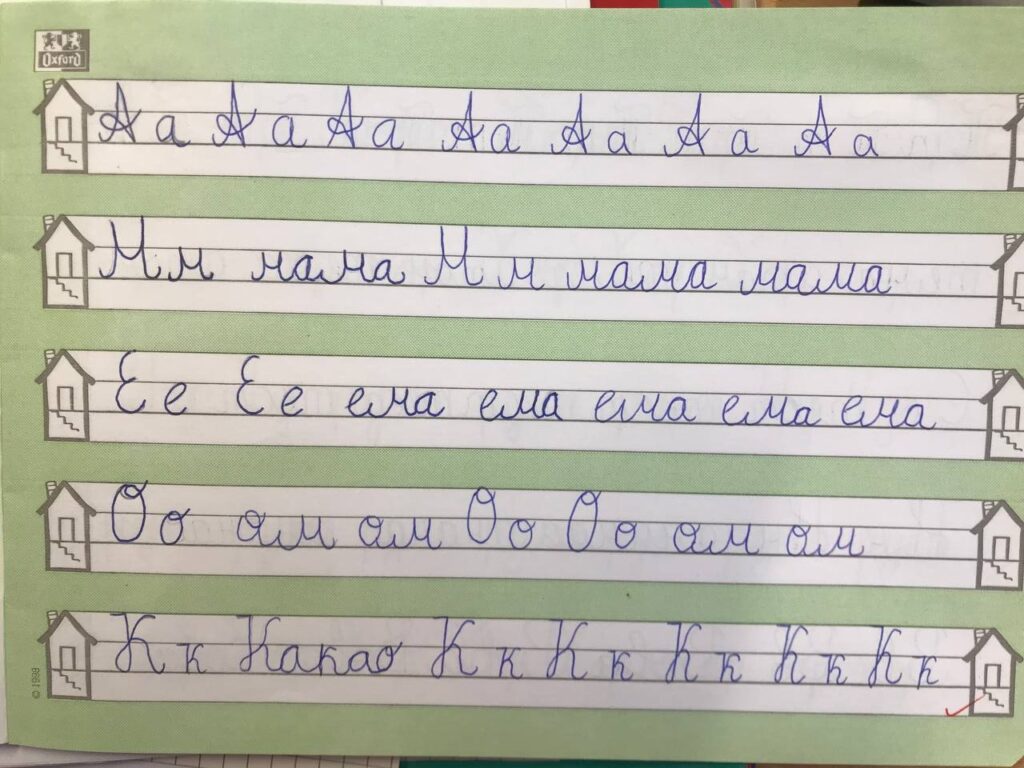 Oxford
Аа Аа Аа Аа Аа Аа Аа
Мм мама Мм мама мама
Ее Ее ема ема ема ема ема
Оо ом ом Оо Оо ом ом
Кк Какао Кк Кк Кк Кк Кк
© 1998